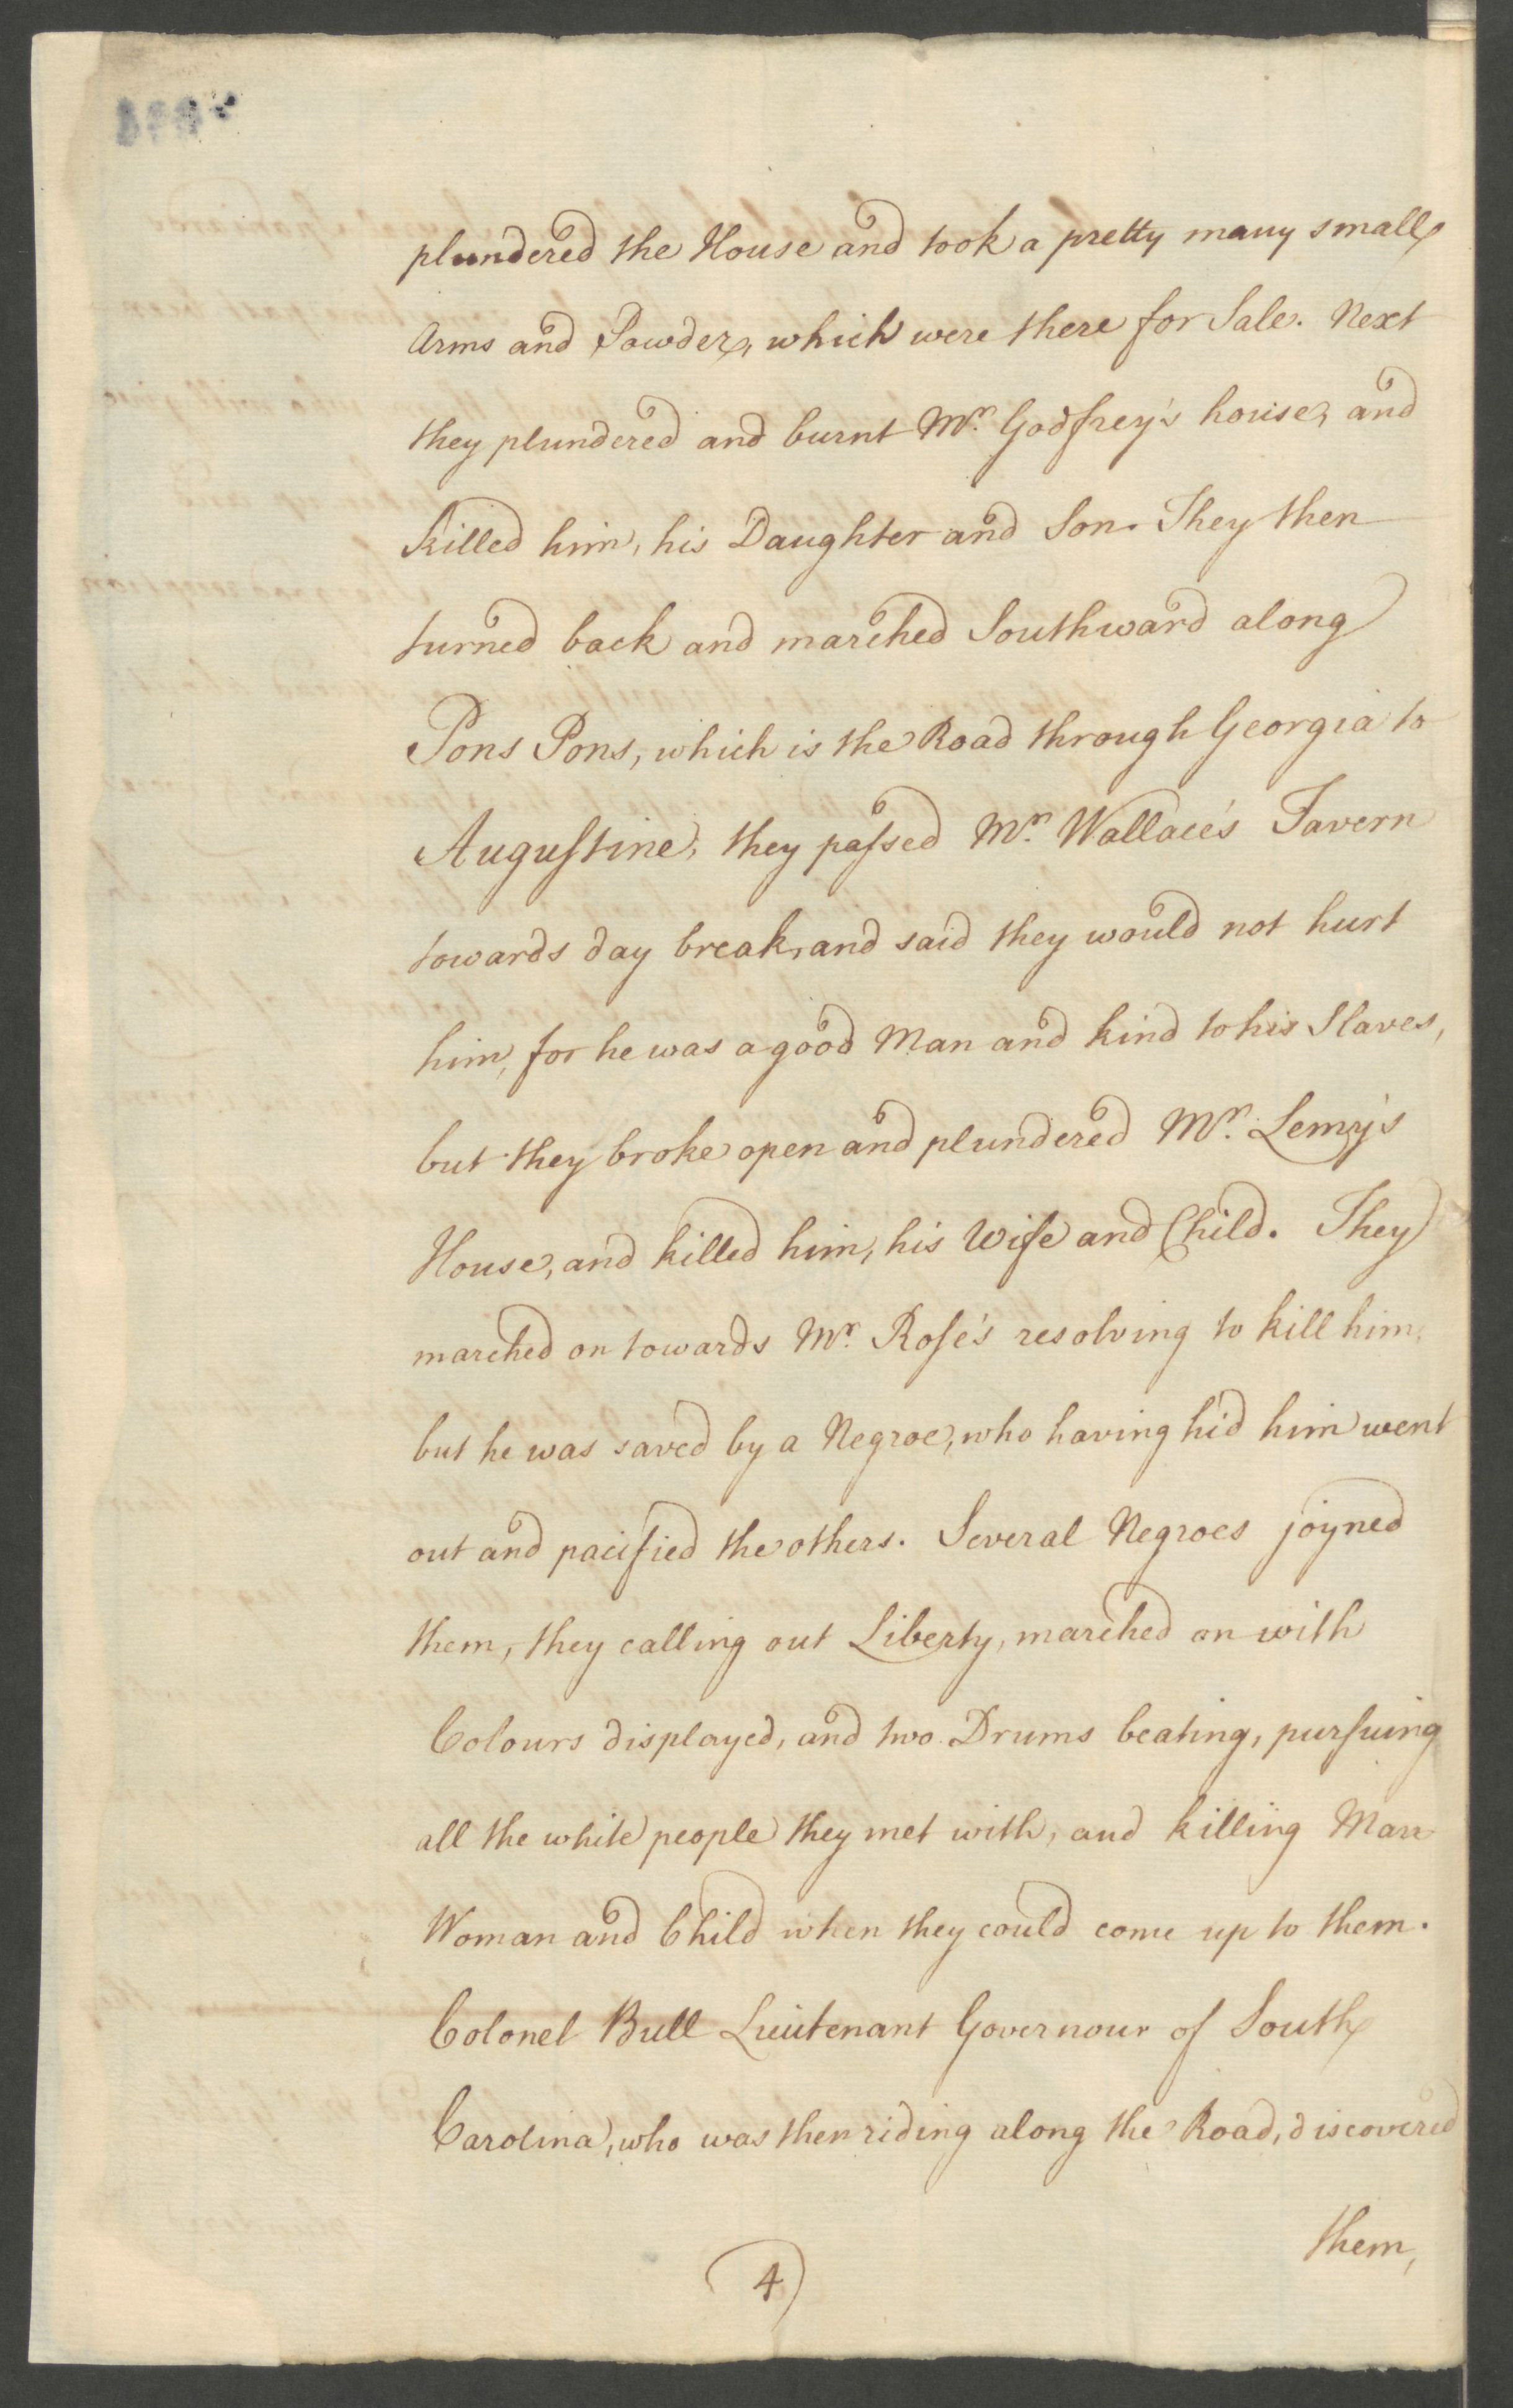 plundered the House and took a pretty many small
Arms and Powder, which were there for Sale. Next
they plundered and burnt Mr. Godfrey's house, and
killed him, his Daughter and Son. They then
turned back and marched Southward along
Pons Pons, which is the Road through Georgia to
Augustine, they passed Mr. Wallace's Tavern
towards day break, and said they would not hurt
him, for he was a good Man and kind to his Slaves,
but they broke open and plundered Mr. Lemy's
House, and killed him, his Wife and Child. They
marched on towards Mr. Rose's resolving to kill him,
but he was saved by a Negroe, who having hid him went
out and pacified the others. Several Negroes joyned
them, they calling out Liberty, marched on with
Colours displayed, and two Drums beating, pursuing
all the white people they met with, and killing Man
Woman and Child when they could come up to them.
Colonel Bull Lieutenant Governour of South
Carolina, who was then riding along the Road, discovered
them,
4